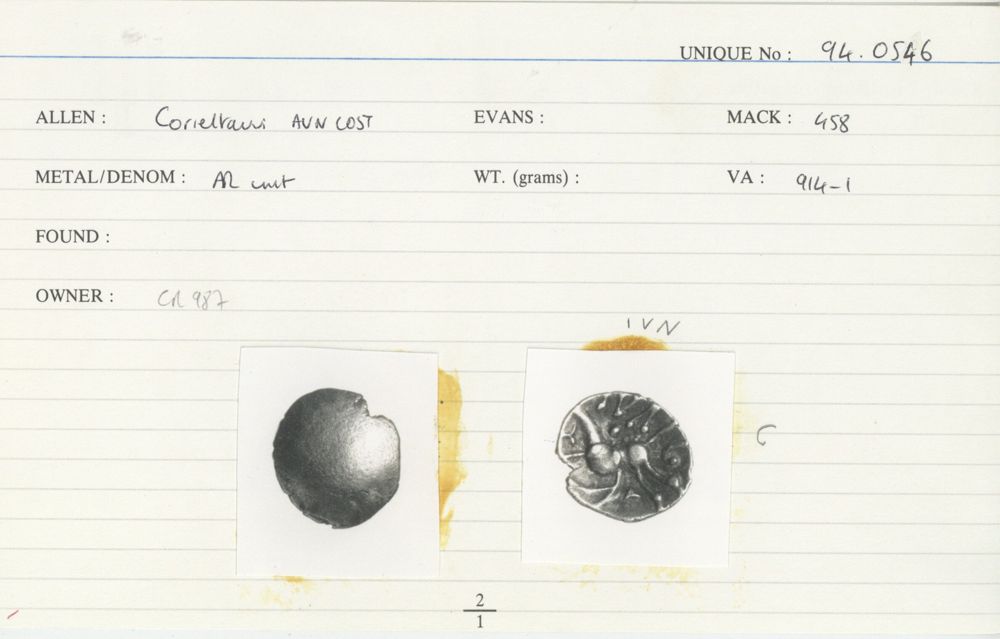 UNIQUE No : 94.0546
ALLEN : Corieltauvi AVN COST EVANS : MACK : 458
METAL/DENOM : AR unit WT. (grams) : VA : 914-1
FOUND :
OWNER : CR 987
IVN
C
2
1